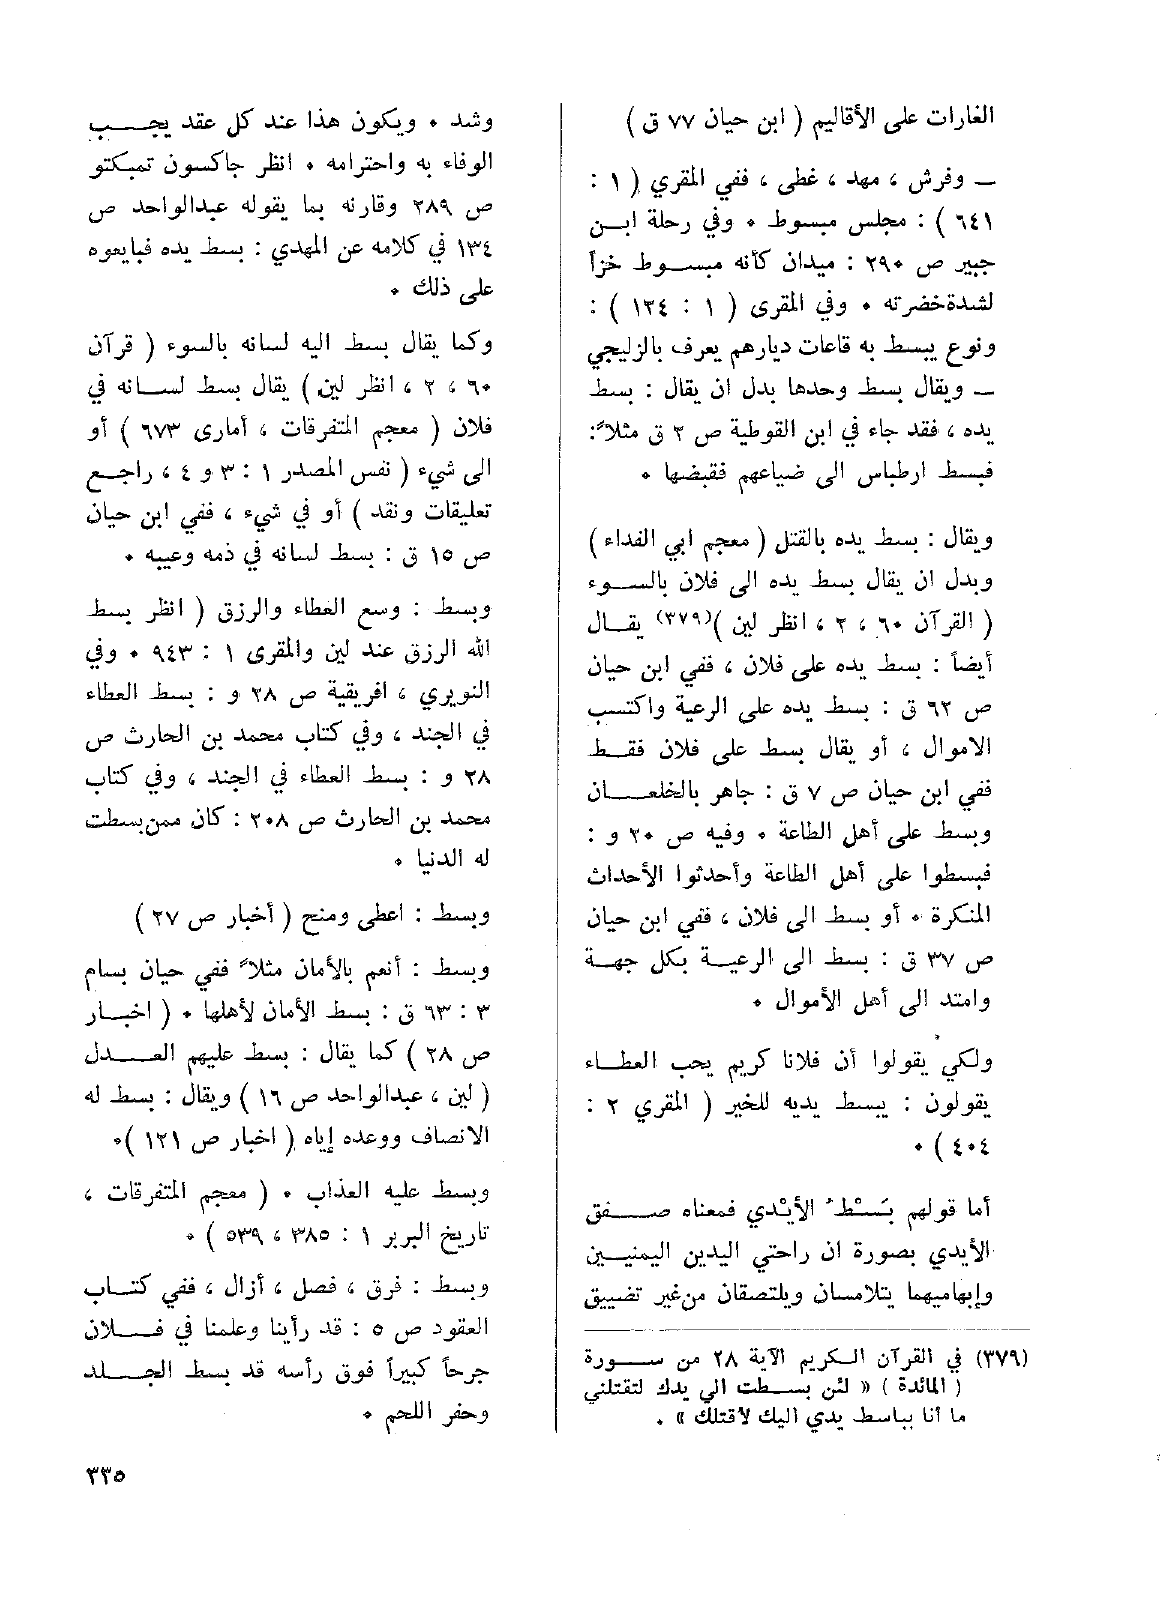 الغارات على الأقاليم ( ابن حيان ٧٧ ق )
ــ وفرش ، مهد ، غطى ، ففي المقري ( ١ :
٦٤١ ) : مجلس مبسوط ٠ وفي رحلة ابــن
جبير ص ٢٩٠ : ميدان كأنه مبســوط خزاً
لشدة خضرته ٠ وفي المقرى ( ١ : ١٢٤ ) :
ونوع يبسط به قاعات ديارهم يعرف بالزليجي
ــ ويقال بسط وحدها بدل ان يقال : بسط
يده ، فقد جاء في ابن القوطية ص ٢ ق مثلاً :
فبسط ارطباس الى ضياعهم فقبضها ٠
ويقال : بسط يده بالقتل ( معجم ابي الفداء )
وبدل ان يقال بسط يده الى فلان بالســوء
( القرآن ٦٠ ، ٢ ، انظر لين )(٣٧٩) يقــال
أيضاً : بسط يده على فلان ، ففي ابن حيان
ص ٦٢ ق : بسط يده على الرعية واكتسب
الاموال ، أو يقال بسط على فلان فقــط
ففي ابن حيان ص ٧ ق : جاهر بالخلعــان
وبسط على أهل الطاعة ٠ وفيه ص ٢٠ و :
فبسطوا على أهل الطاعة وأحدثوا الأحداث
المنكرة ٠ أو بسط الى فلان ، ففي ابن حيان
ص ٣٧ ق : بسط الى الرعيــة بكل جهــة
وامتد الى أهل الأموال ٠
ولكي يقولوا أن فلانا كريم يحب العطــاء
يقولون : يبسط يديه للخير ( المقري ٢ :
٤٠٤ ) ٠
أما قولهم بَسْطُ الأيْدي فمعناه صــفق
الأيدي بصورة ان راحتي اليدين اليمنيــين
وإبهاميهما يتلامسان ويلتصقان من غير تضييق
(٣٧٩) في القرآن الكريم الآية ٢٨ من ســورة
( المائدة ) « لئن بسطت الي يدك لتقتلني
ما أنا بباسط يدي اليك لأقتلك » ٠
وشد ٠ ويكون هذا عند كل عقد يجــب
الوفاء به واحترامه ٠ انظر جاكسون تمبكتو
ص ٢٨٩ وقارنه بما يقوله عبدالواحد ص
١٣٤ في كلامه عن المهدي : بسط يده فبايعوه
على ذلك ٠
وكما يقال بسط اليه لسانه بالسوء ( قرآن
٦٠ ، ٢ ، انظر لين ) يقال بسط لســانه في
فلان ( معجم المتفرقات ، أماري ٦٧٣ ) أو
الى شيء ( نفس المصدر ١ : ٣ و ٤ ، راجــع
تعليقات ونقد ) أو في شيء ، ففي ابن حيان
ص ١٥ ق : بسط لسانه في ذمه وعيبه ٠
وبسط : وسع العطاء والرزق ( انظر بسط
الله الرزق عند لين والمقرى ١ : ٩٤٣ ٠ وفي
النويري ، افريقية ص ٢٨ و : بسط العطاء
في الجند ، وفي كتاب محمد بن الحارث ص
٢٨ و : بسط العطاء في الجند ، وفي كتاب
محمد بن الحارث ص ٢٠٨ : كان ممن بسطت
له الدنيا ٠
وبسط : اعطى ومنح ( أخبار ص ٢٧ )
وبسط : أنعم بالأمان مثلاً ففي حيان بسام
٣ : ٦٣ ق : بسط الأمان لأهلها ٠ ( اخبــار
ص ٢٨ ) كما يقال : بسط عليهم العــدل
( لين ، عبدالواحد ص ١٦ ) ويقال : بسط له
الانصاف ووعده إياه ( اخبار ص ١٢١ )٠
وبسط عليه العذاب ٠ ( معجم المتفرقات ،
تاريخ البربر ١ : ٣٨٥ ، ٥٣٩ ) ٠
وبسط : فرق ، فصل ، أزال ، ففي كتــاب
العقود ص ٥ : قد رأينا وعلمنا في فــلان
جرحاً كبيراً فوق رأسه قد بسط الجــلد
وحفر اللحم ٠
٣٣٥